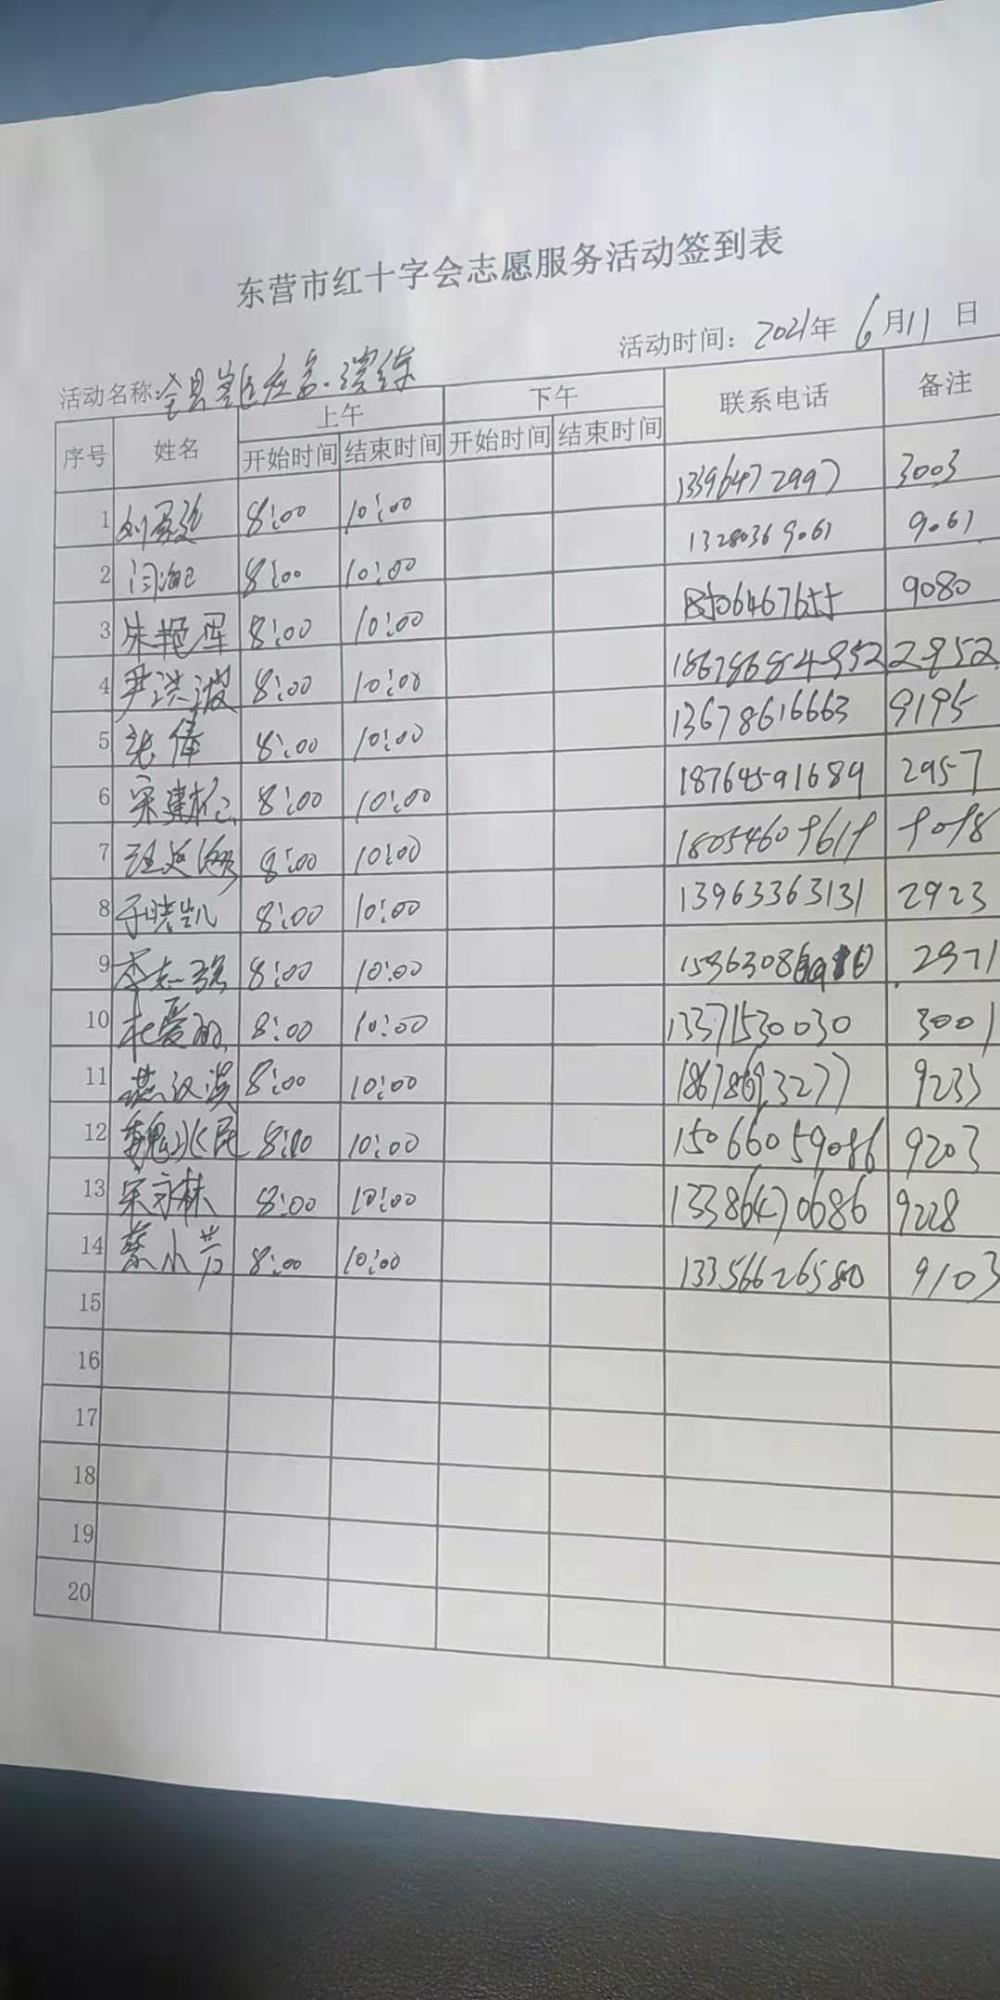 东营市红十字会志愿服务活动签到表
活动名称: 全县 应急演练 活动时间: 2021年 6月11日
序号 姓名 上午 下午 联系电话 备注
开始时间 结束时间 开始时间 结束时间
1 8:00 10:00 13396472997 3003
2 闫 8:00 10:00 13280369061 9061
3 朱艳军 8:00 10:00 18506467655 9080
4 尹洪波 8:00 10:00 2952
5 8:00 10:00 13678616663 9195
6 宋建 8:00 10:00 18764591689 2957
7 8:00 10:00 18054609619 9098
8 于晓凯 8:00 10:00 13963363131 2923
9 李志强 8:00 10:00 2971
10 杜爱 8:00 10:00 13371530030 3001
11 燕汉 8:00 10:00 9233
12 魏兆民 8:00 10:00 15066059086 9203
13 宋永林 8:00 10:00 13386470686 9228
14 蔡小芳 8:00 10:00 13356626580 9103
15
16
17
18
19
20